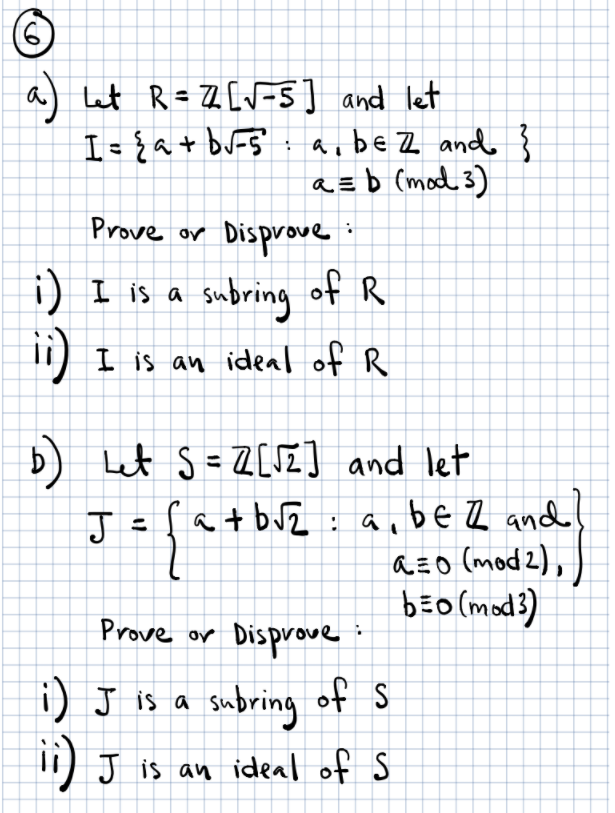 6
a) Let R = ℤ[√-5] and let
I = {a + b√-5 : a, b ∈ ℤ and }
a ≡ b (mod 3)
Prove or Disprove :
i) I is a subring of R
ii) I is an ideal of R
b) Let S = ℤ[√2] and let
J = { a + b√2 : a, b ∈ ℤ and }
a ≡ 0 (mod 2),
b ≡ 0 (mod 3)
Prove or Disprove :
i) J is a subring of S
ii) J is an ideal of S